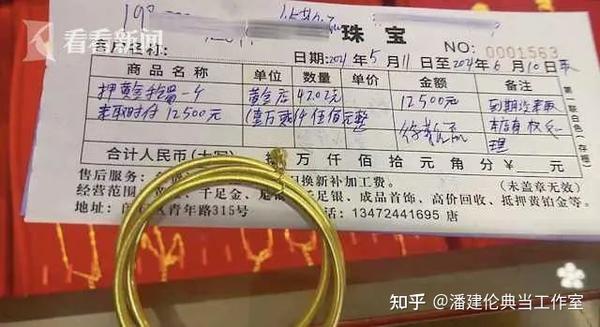 19
看看新闻
珠宝
NO: 0001563
日期: 2021年5月11日至2021年6月10日
商品名称 单位 数量 单价 金额 备注
押黄金手 一个 黄金店 47.02元 12500元 到期没来取
来取时付12500元 (壹万贰仟伍佰元整 本店有权处
理
合计人民币(大写) 万 仟 佰 拾 元 角 分 ¥ 元
售后服务: 换新补加工费。 (未盖章无效)
经营范围: 千足金、足 千足银、成品首饰、高价回收、抵押黄铂金等。
地址: 区青年路315号 13472441695 唐
第一联白色(存根)
知乎 @潘建伦典当工作室